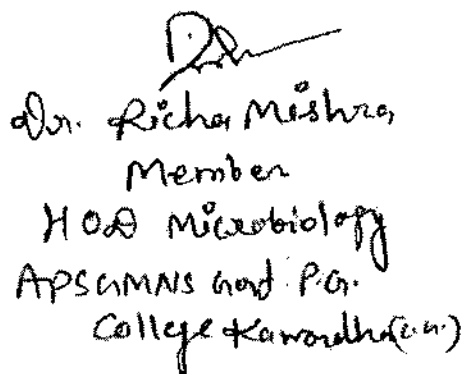 Dr. Richa Mishra
Member
HOD Microbiology
APSGMNS Govt P.G.
College Kawardha (C.G.)